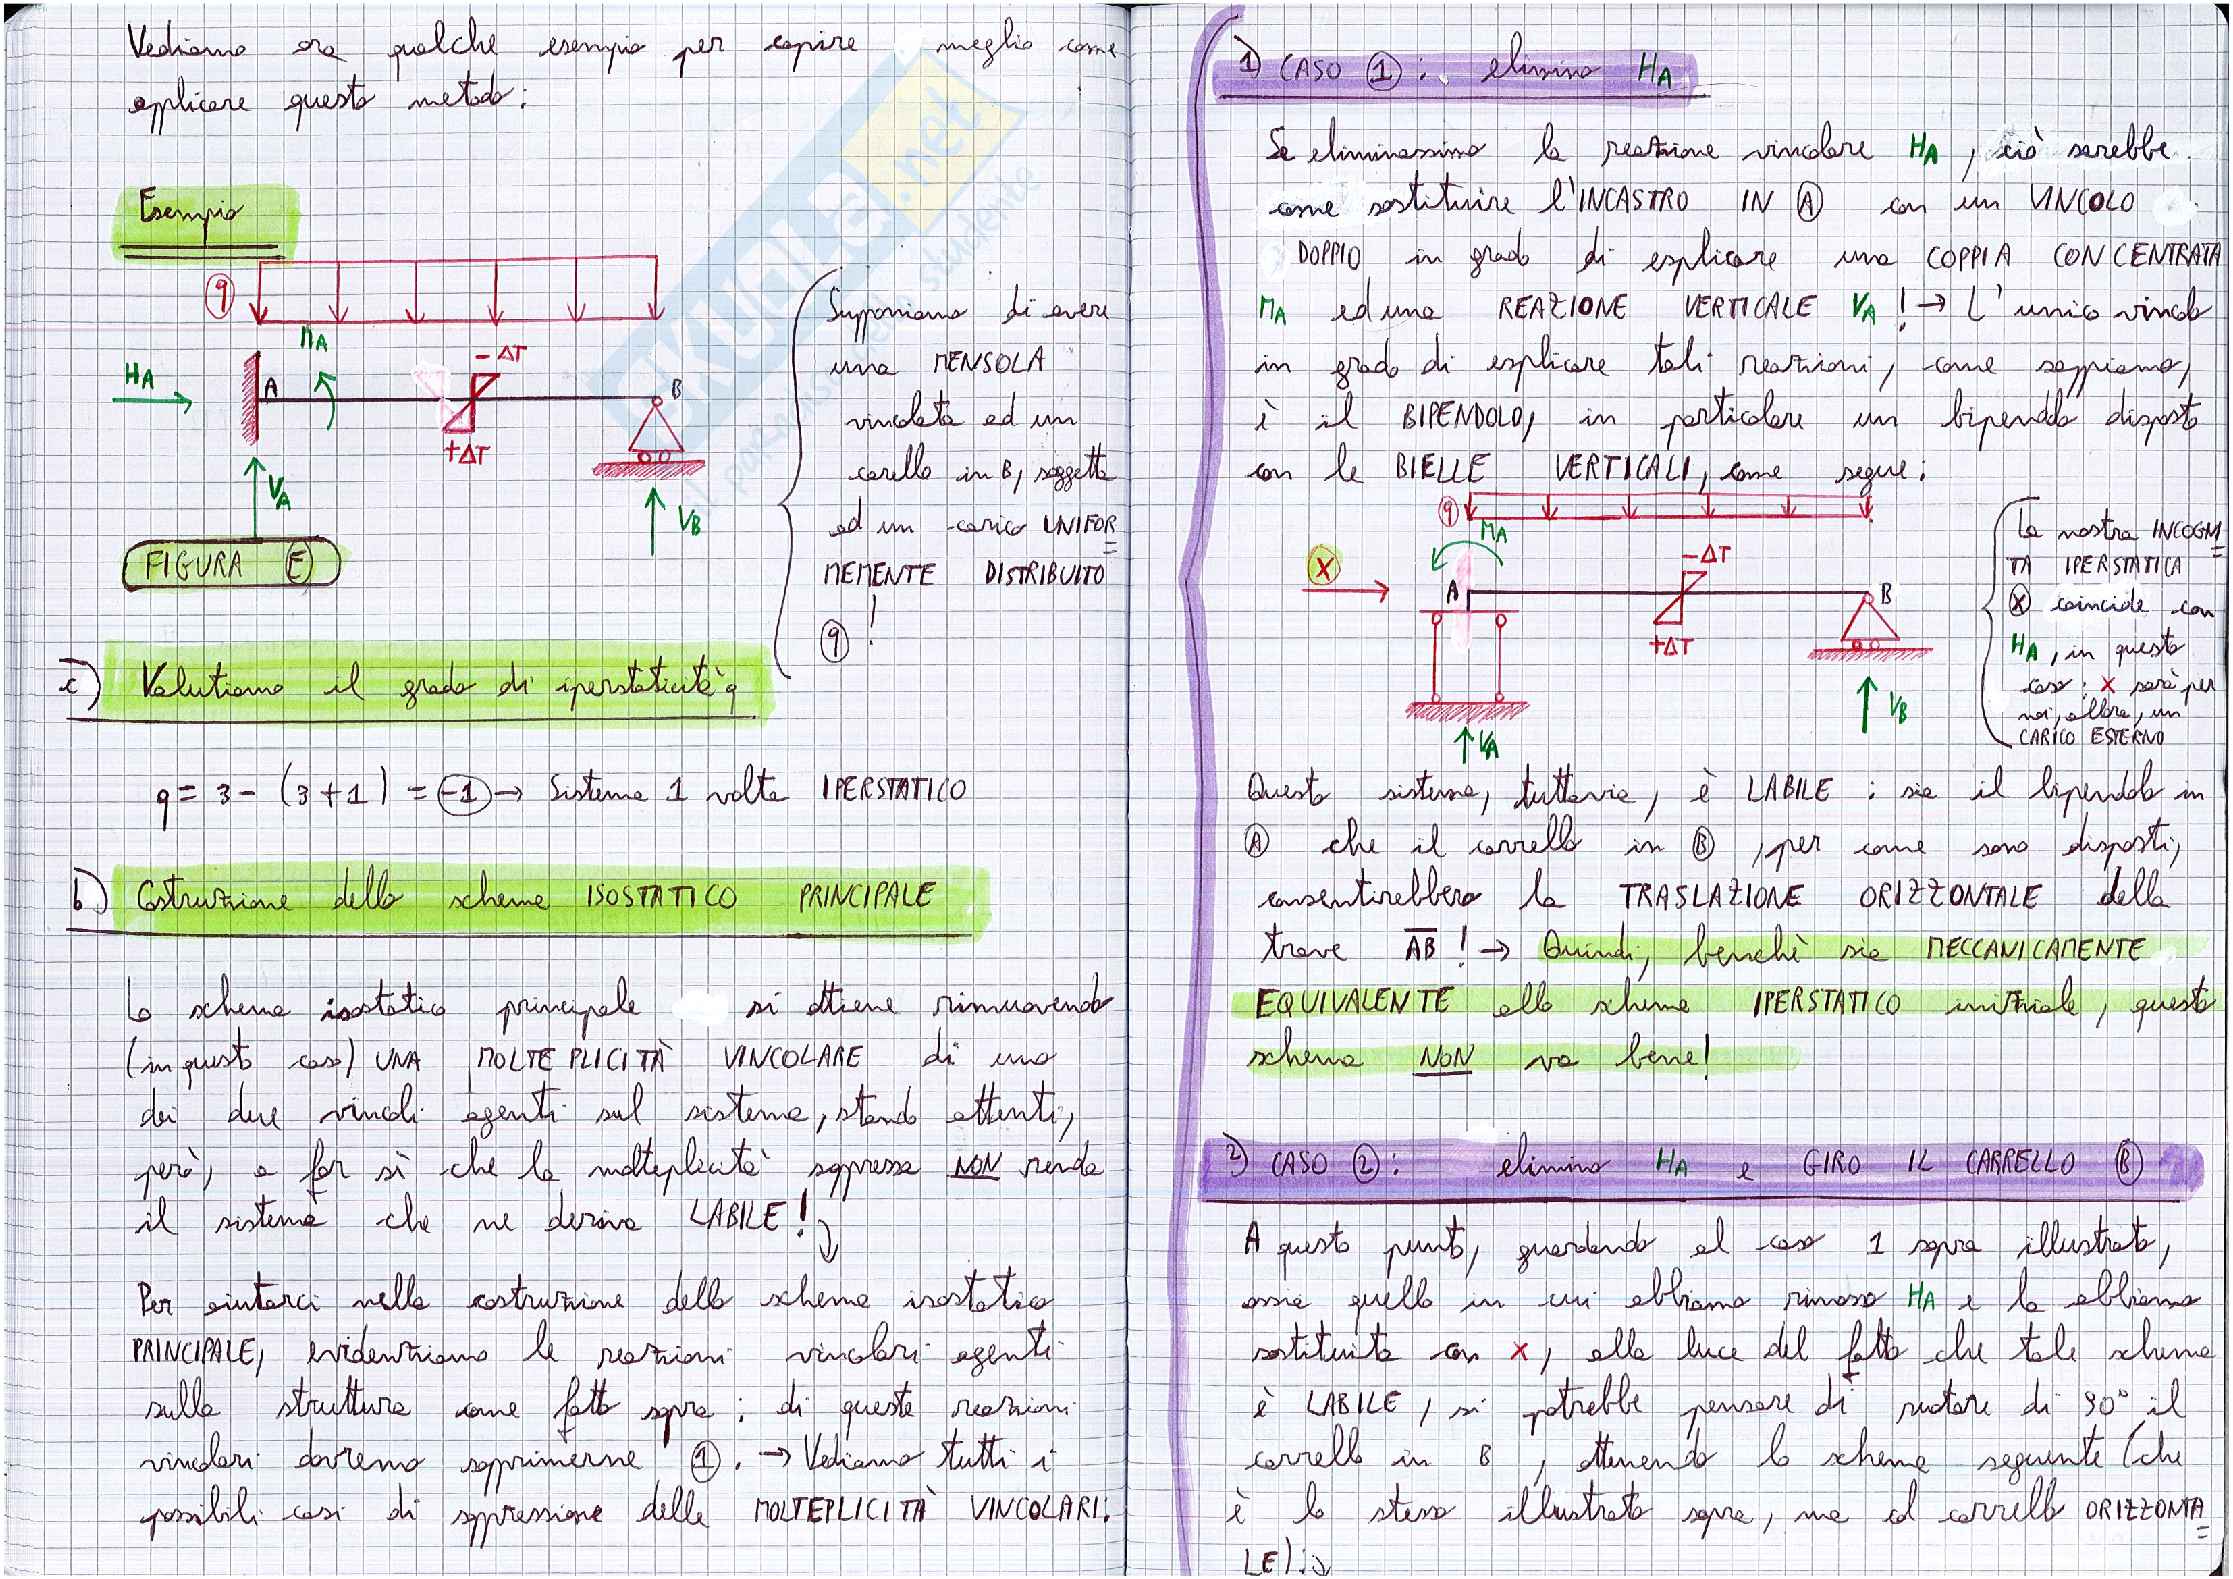 Vediamo ora qualche esempio per capire meglio come
applicare questo metodo:
Esempio
q
MA
HA
A
-ΔT
+ΔT
B
VA
VB
FIGURA E
Supponiamo di avere
una MENSOLA
vincolata ad un
carrello in B, soggetta
ad un carico UNIFOR=
MEMENTE DISTRIBUITO
q !
a) Valutiamo il grado di iperstaticità q
q = 3 - (3+1) = -1 → Sistema 1 volta IPERSTATICO
b) Costruzione dello schema ISOSTATICO PRINCIPALE
Lo schema isostatico principale si ottiene rimuovendo
(in questo caso) UNA MOLTEPLICITÀ VINCOLARE di uno
dei due vincoli agenti sul sistema, stando attenti,
però, a far sì che la molteplicità soppressa NON renda
il sistema che ne deriva LABILE!
Per aiutarci nella costruzione dello schema isostatico
PRINCIPALE, evidenziamo le reazioni vincolari agenti
sulla struttura come fatto sopra; di queste reazioni
vincolari dovremo sopprimerne 1. → Vediamo tutti i
possibili casi di soppressione delle MOLTEPLICITÀ VINCOLARI:
1) CASO 1: elimino HA
Se eliminassimo la reazione vincolare HA, ciò sarebbe
come sostituire l'INCASTRO IN A con un VINCOLO
DOPPIO in grado di esplicare una COPPIA CONCENTRATA
MA ed una REAZIONE VERTICALE VA! → L'unico vincolo
in grado di esplicare tali reazioni, come sappiamo,
è il BIPENDOLO, in particolare un bipendolo disposto
con le BIELLE VERTICALI, come segue:
q
MA
X
A
-ΔT
+ΔT
B
VA
VB
La nostra INCOGNI=
TA IPERSTATICA
X coincide con
HA, in questo
caso: X sarà per
noi, allora, un
CARICO ESTERNO
Questo sistema, tuttavia, è LABILE: sia il bipendolo in
A che il carrello in B, per come sono disposti,
consentirebbero la TRASLAZIONE ORIZZONTALE della
trave AB! → Quindi, benchè sia MECCANICAMENTE
EQUIVALENTE allo schema IPERSTATICO iniziale, questo
schema NON va bene!
2) CASO 2: elimino HA e GIRO IL CARRELLO B
A questo punto, guardando al caso 1 sopra illustrato,
ossia quello in cui abbiamo rimosso HA e la abbiamo
sostituita con X, alla luce del fatto che tale schema
è LABILE, si potrebbe pensare di ruotare di 90° il
carrello in B, ottenendo lo schema seguente (che
è lo stesso illustrato sopra, ma col carrello ORIZZONTA=
LE):
SKUOLA.net